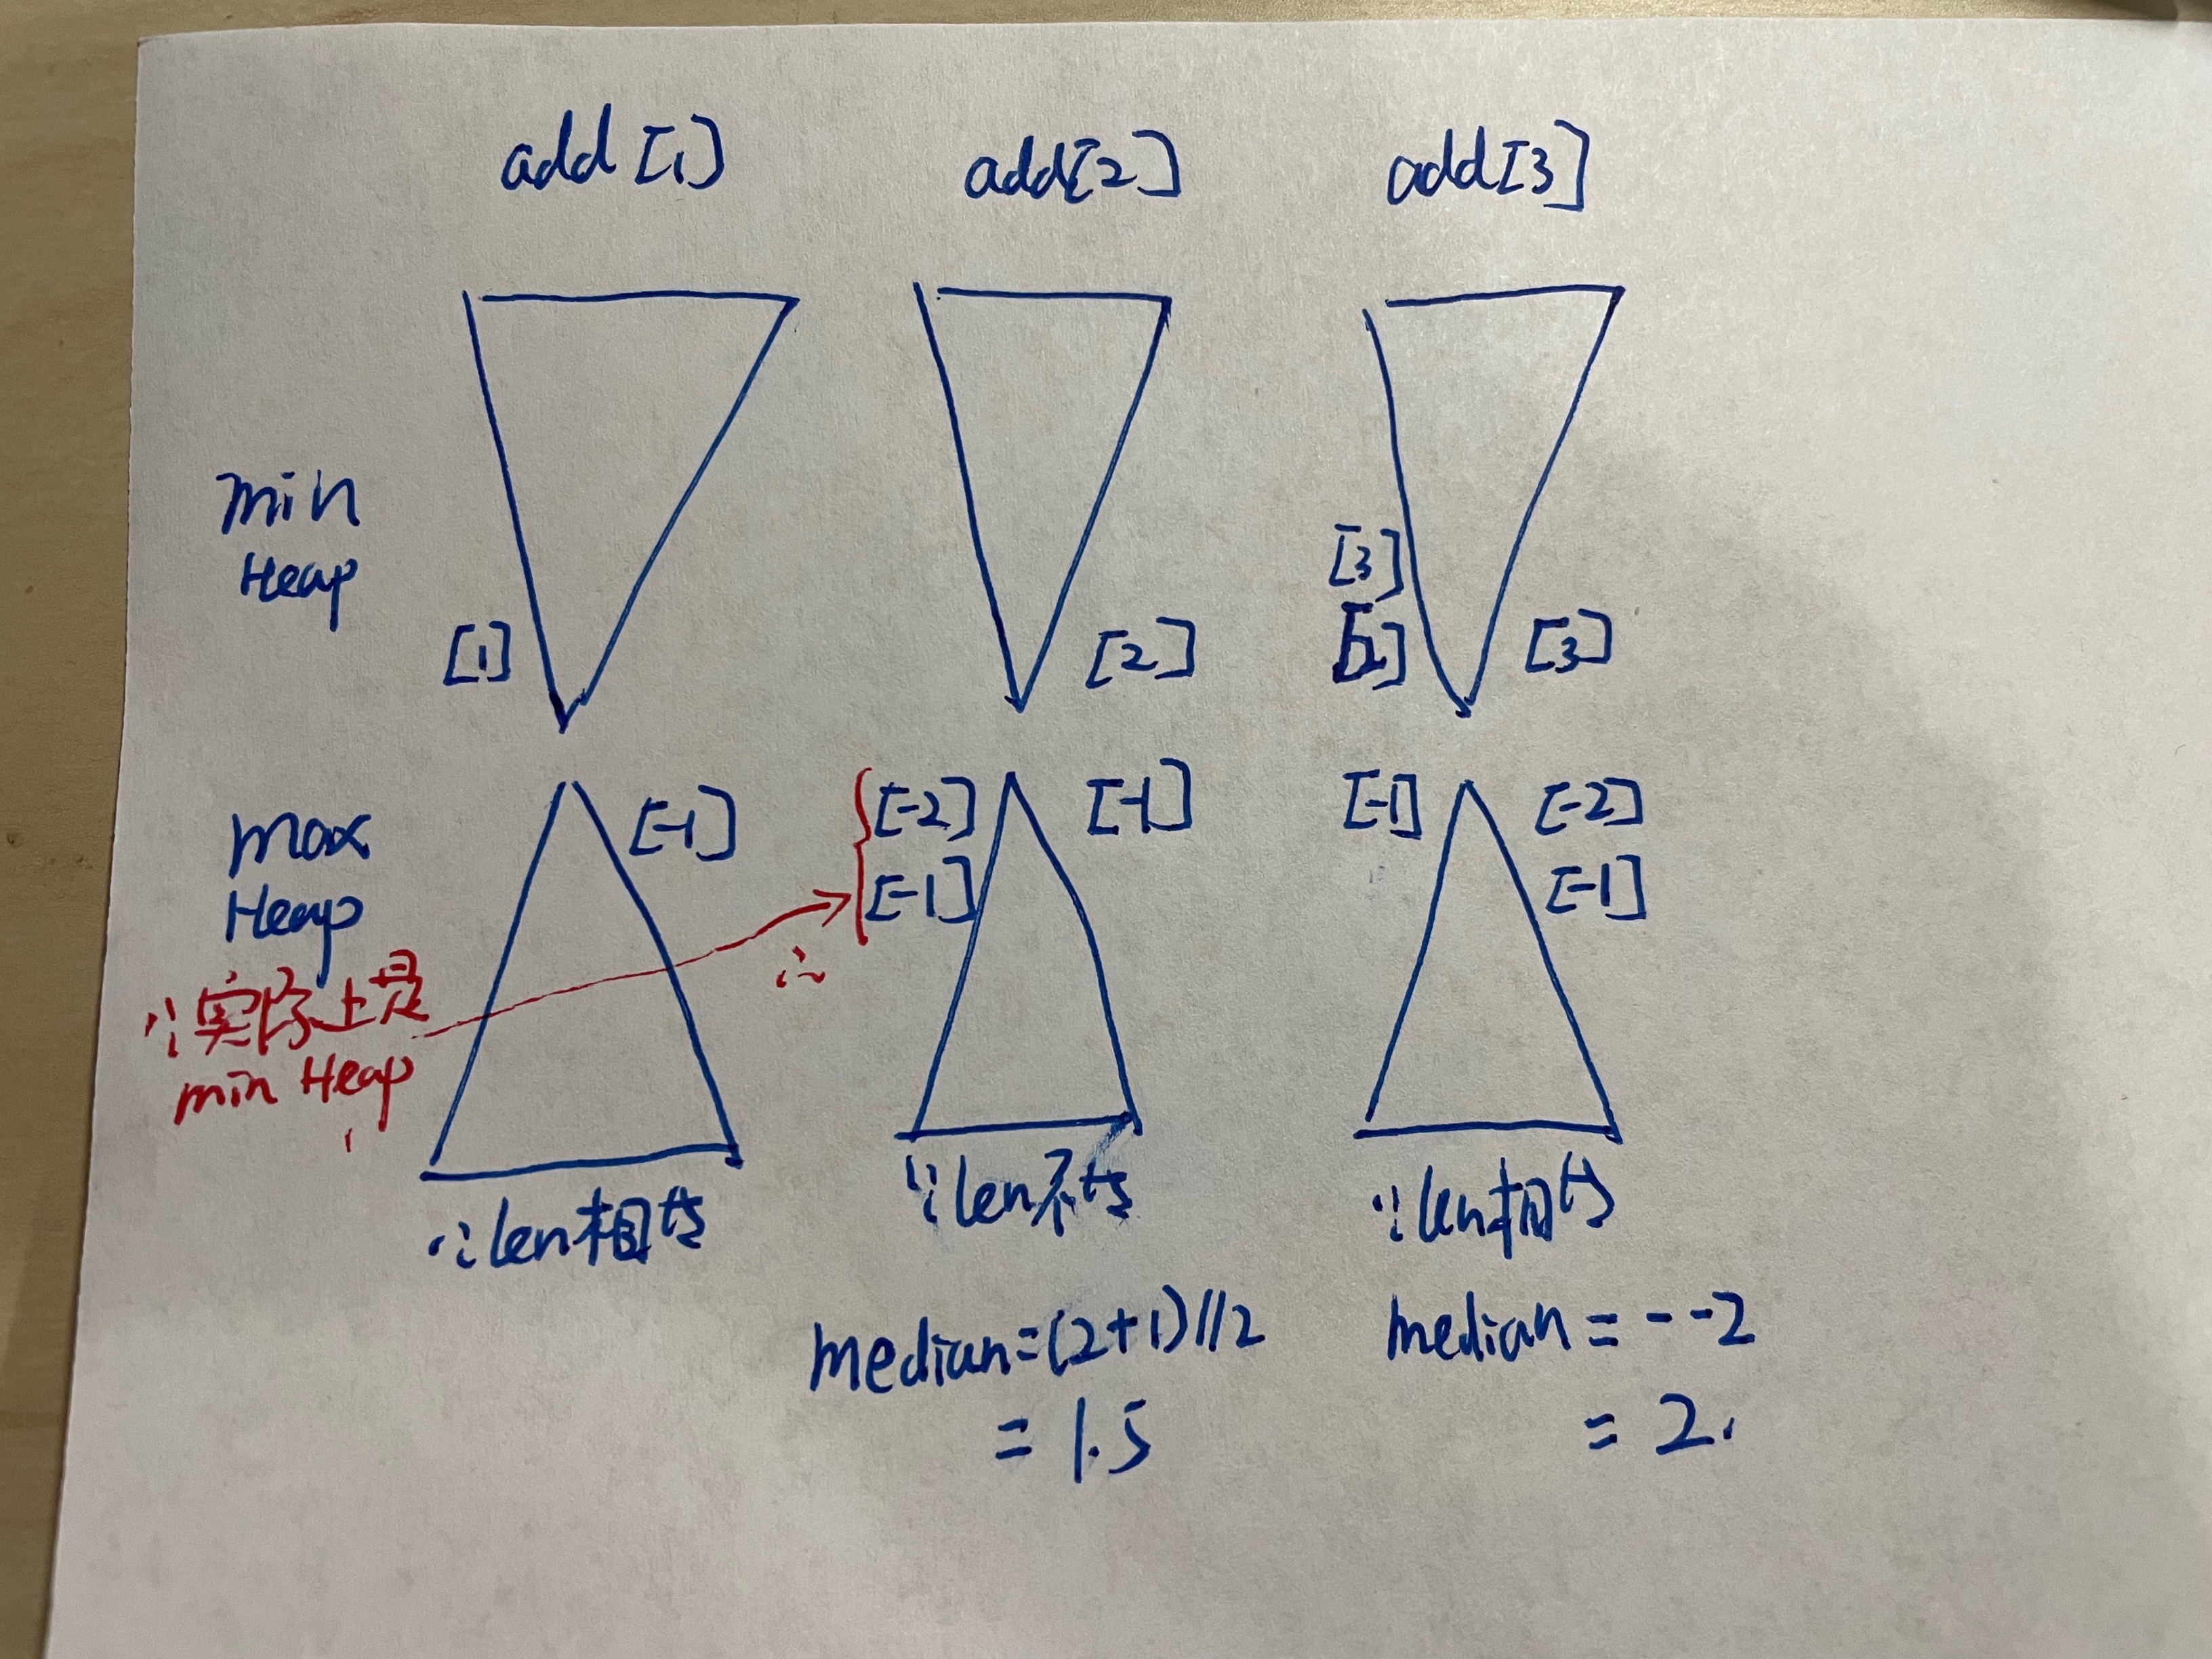 add[1]
add[2]
add[3]
min
Heap
[1]
[2]
[3]
[2]
[3]
max
Heap
[-1]
[-2]
[-1]
[-1]
[-1]
[-2]
[-1]
∵实际上是
min Heap
∴
∵len相等
∵len不等
∵len相等
median=(2+1)//2
= 1.5
median = --2
= 2.